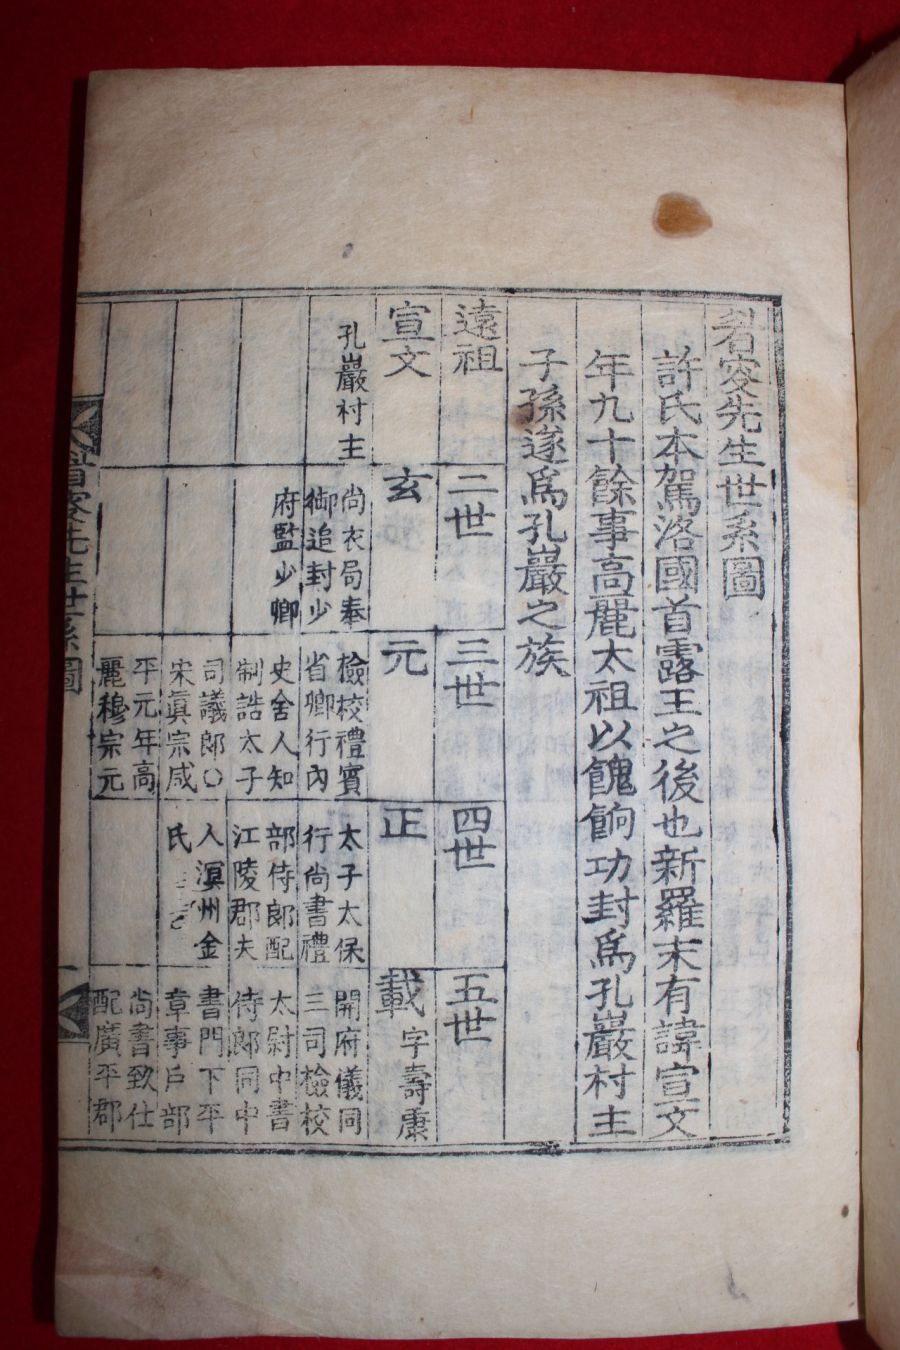 省先生世系圖
許氏本駕洛國首露王之後也新羅末有諱宣文
年九十餘事高麗太祖以餽餉功封爲孔巖村主
子孫遂爲孔巖之族
遠祖
宣文
孔巖村主
二世
玄
尚衣局奉
御追封少
府監少卿
三世
元
檢校禮賓
省卿行內
史舍人知
制誥太子
司議郞○
宋眞宗咸
平元年高
麗穆宗元
四世
正
太子太保
行尚書禮
部侍郞配
江陵郡夫
人溟州金
氏
五世
載 字壽康
開府儀同
三司檢校
太尉中書
侍郞同中
書門下平
章事戶部
尚書致仕
配廣平郡
省先生世系圖
一